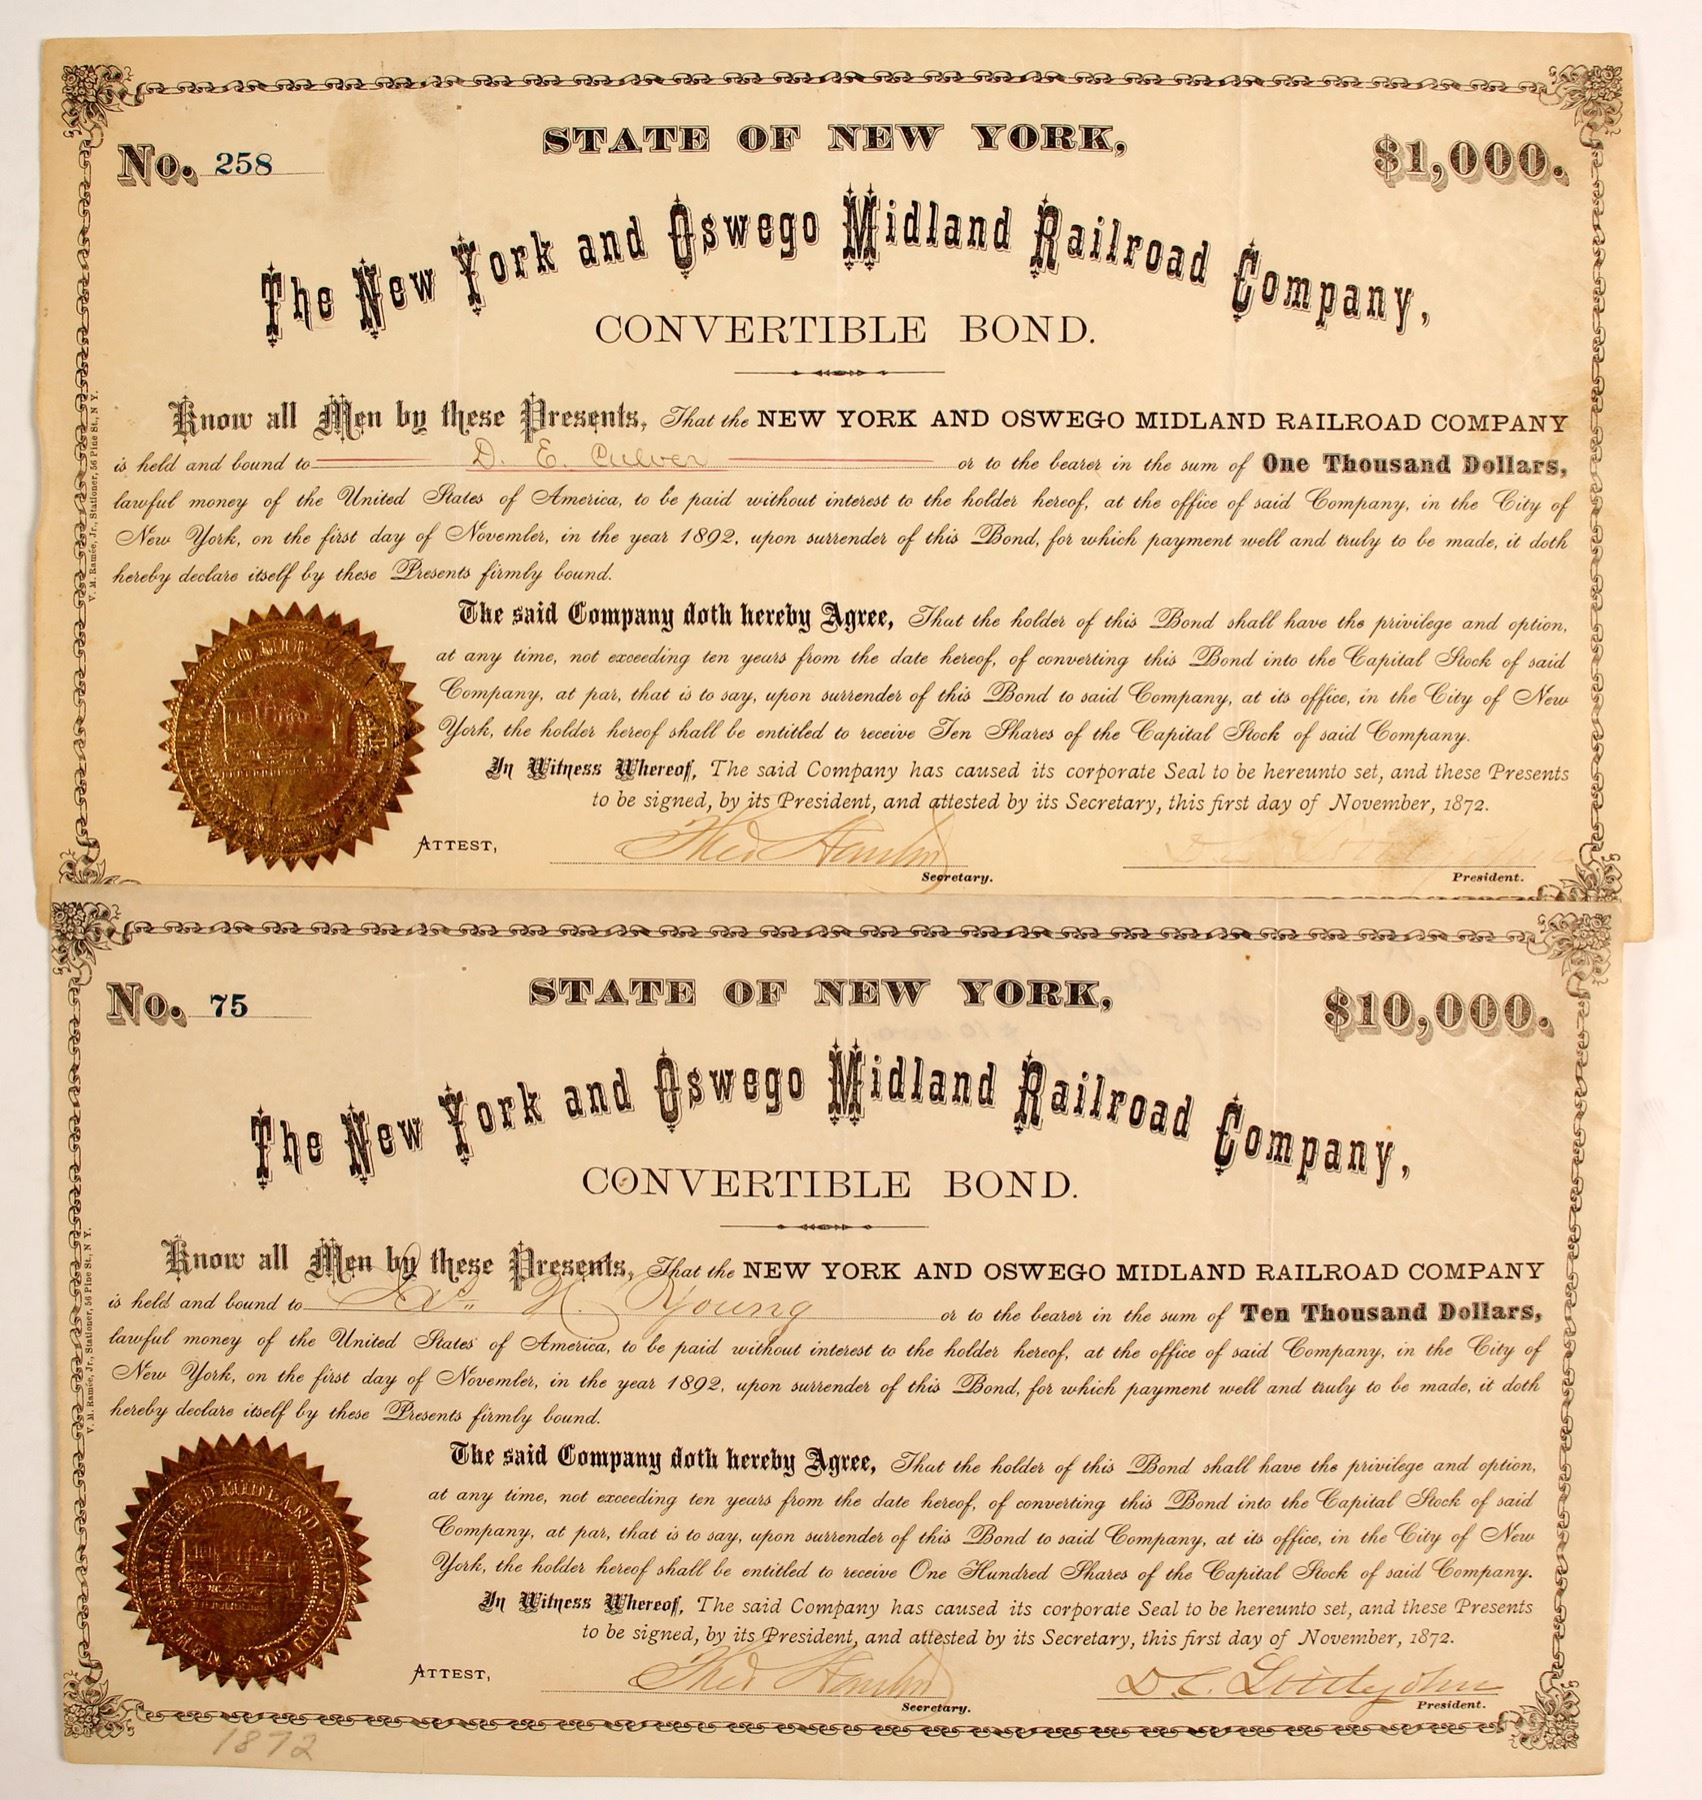 No. 258
STATE OF NEW YORK,
$1,000.
The New York and Oswego Midland Railroad Company,
CONVERTIBLE BOND.
Know all Men by these Presents, That the NEW YORK AND OSWEGO MIDLAND RAILROAD COMPANY
is held and bound to D. E. Culver or to the bearer in the sum of One Thousand Dollars,
lawful money of the United States of America, to be paid without interest to the holder hereof, at the office of said Company, in the City of
New York, on the first day of November, in the year 1892, upon surrender of this Bond, for which payment well and truly to be made, it doth
hereby declare itself by these Presents firmly bound.
The said Company doth hereby Agree, That the holder of this Bond shall have the privilege and option,
at any time, not exceeding ten years from the date hereof, of converting this Bond into the Capital Stock of said
Company, at par, that is to say, upon surrender of this Bond to said Company, at its office, in the City of New
York, the holder hereof shall be entitled to receive Ten Shares of the Capital Stock of said Company.
In Witness Whereof, The said Company has caused its corporate Seal to be hereunto set, and these Presents
to be signed, by its President, and attested by its Secretary, this first day of November, 1872.
ATTEST,
Secretary.
President.
V. M. Ramée, Jr., Stationer, 56 Pine St., N.Y.
No. 75
STATE OF NEW YORK,
$10,000.
The New York and Oswego Midland Railroad Company,
CONVERTIBLE BOND.
Know all Men by these Presents, That the NEW YORK AND OSWEGO MIDLAND RAILROAD COMPANY
is held and bound to N. Young or to the bearer in the sum of Ten Thousand Dollars,
lawful money of the United States of America, to be paid without interest to the holder hereof, at the office of said Company, in the City of
New York, on the first day of November, in the year 1892, upon surrender of this Bond, for which payment well and truly to be made, it doth
hereby declare itself by these Presents firmly bound.
The said Company doth hereby Agree, That the holder of this Bond shall have the privilege and option,
at any time, not exceeding ten years from the date hereof, of converting this Bond into the Capital Stock of said
Company, at par, that is to say, upon surrender of this Bond to said Company, at its office, in the City of New
York, the holder hereof shall be entitled to receive One Hundred Shares of the Capital Stock of said Company.
In Witness Whereof, The said Company has caused its corporate Seal to be hereunto set, and these Presents
to be signed, by its President, and attested by its Secretary, this first day of November, 1872.
ATTEST,
D. C. Littlejohn
Secretary.
President.
V. M. Ramée, Jr., Stationer, 56 Pine St., N.Y.
1872